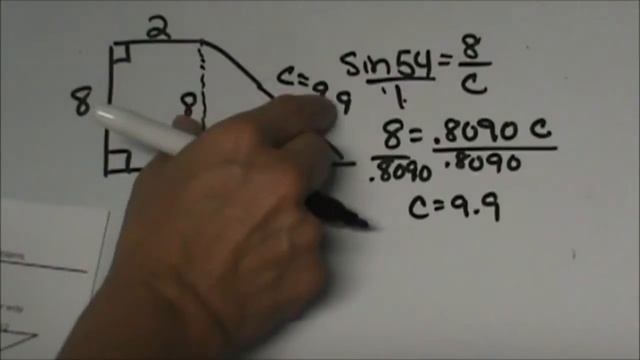 2
8
8
C = 9.9
sin 54 = 8
1 C
8 = .8090 C
.8090 .8090
C = 9.9